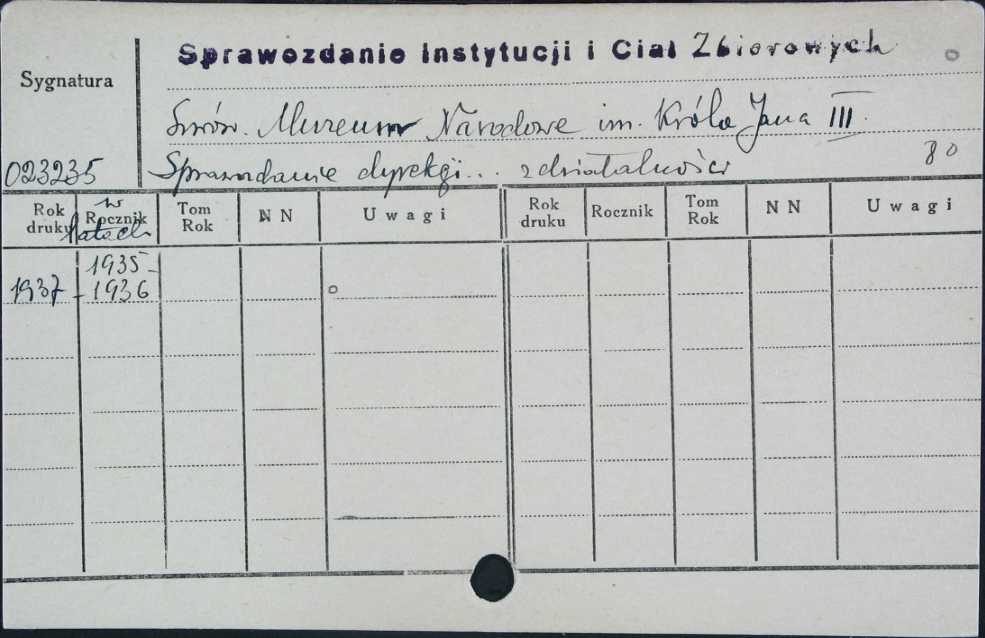 Sprawozdanie Instytucji i Ciał Zbiorowych
Sygnatura
Lwów. Muzeum Narodowe im. Króla Jana III.
023235 Sprawozdanie dyrekcji... z działalności 80
Rok druku w Rocznik latach Tom Rok NN Uwagi Rok druku Rocznik Tom Rok NN Uwagi
1935-
1937 - 1936